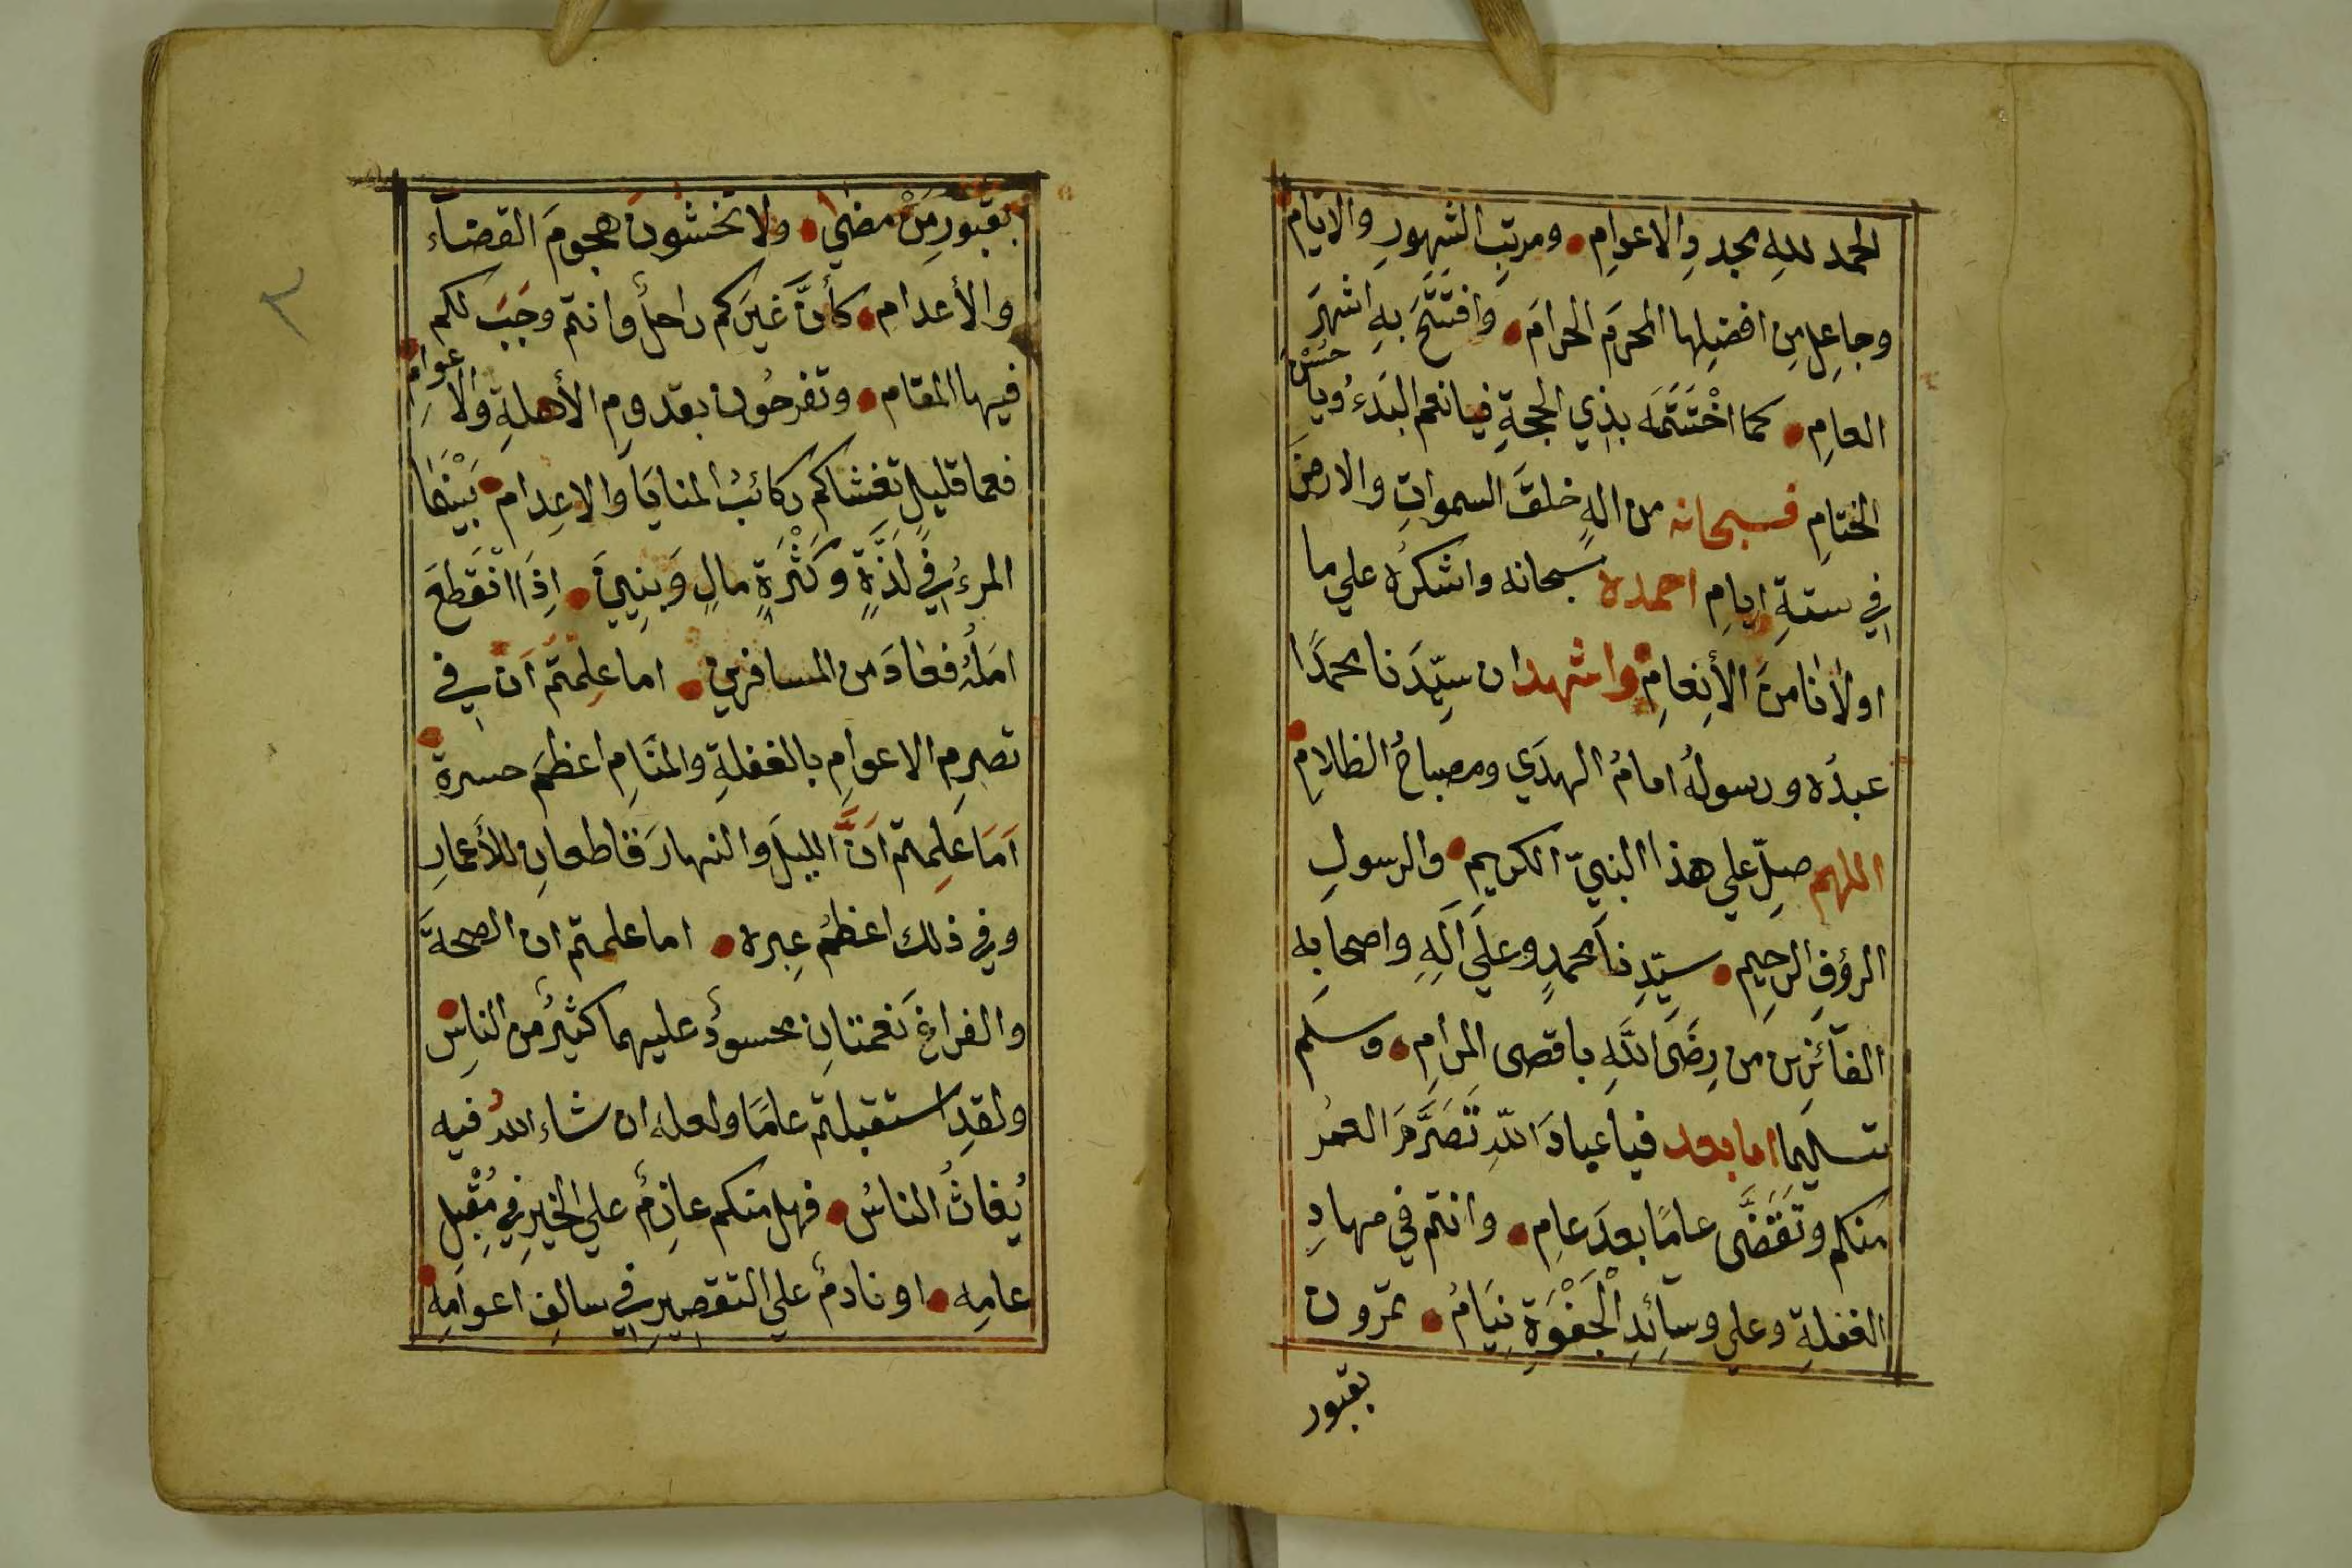 الحمد لله مجددِ الاعوامِ ومرتبِ الشهورِ والايام
وجاعِلِ مِن افضلِها المحرمَ الحرامَ وافتَتَحَ بهِ اشهرَ
العامِ كما اخْتَتَمَه بذِي الحجةِ فيانعم البَدءُ ويا حسْنَ
الختامِ فسبحانه من الهٍ خلقَ السمواتِ والارضَ
في ستةِ ايامِ احمده سبحانه واشكرُه علي ما
اولانا منَ الأنعامِ واشهد ان سيِّدَنا محمدًا
عبدُه ورسولُه امامُ الهدَي ومصباحُ الظلامِ
اللهم صلِّ علي هذا النبيّ الكريمِ والرسولِ
الرؤفِ الرحيمِ سيّدِنا محمدٍ وعلَي آلِهِ واصحابِه
الفآئزين من رِضَى اللهِ باقصى المرامِ وسلم
تسليما اما بعد فيا عبادَ اللهِ تَصَرَّمَ العمُر
منكم وتَقَضَّى عامًا بعدَ عامِ وانتم في مهادِ
الغفلةِ وعلي وسآئِدِ الْجَفْوَةِ نِيَامُ تمرون
بقبور
بقبورِ مَنْ مضي ولا تخشون هجومَ القضآء
والأعدام كأنَّ غيرَكم راحلٌ وانتم وجَبَ لكم
فيها المقام وتفرحُون بقدومِ الأهلةِ والاعوامِ
فعما قليلٍ تغشاكم ركائبُ المنايَا والاعِدام بَيْنَمَا
المرءُ في لَذَّةٍ وكَثْرَةِ مالٍ وَبنِينَ اِذَا انْقَطعَ
امَلُه فعادَ من المسافرين اما علِمتم اَن في
تصرمِ الاعوامِ بالغفلةِ والمنَامِ اعظمَ حسرةِ
اَمَا عَلِمتم اَنَّ الليلَ والنهارَ قاطعانِ للأعمارِ
وفي ذلك اعظمُ عِبره اما علمتم ان الصحةَ
والفراغَ نعمتانِ محسودٌ عليهما كثيرٌ من الناسِ
ولقدِ استقبلتم عامًا ولعله ان شاء اللهُ فيه
يُغاثُ الناسُ فهل منكم عازمٌ علي الخيرِ في مُقْبِلِ
عامِه او نادمٌ علي التقصيرِ في سالفِ اعوامِه
٣